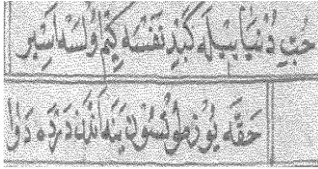 حبّ دنيا بيله كبند نفسه كيم اولسه اسير
حقّه يوز طوتسون ينه اندن در درده دوا